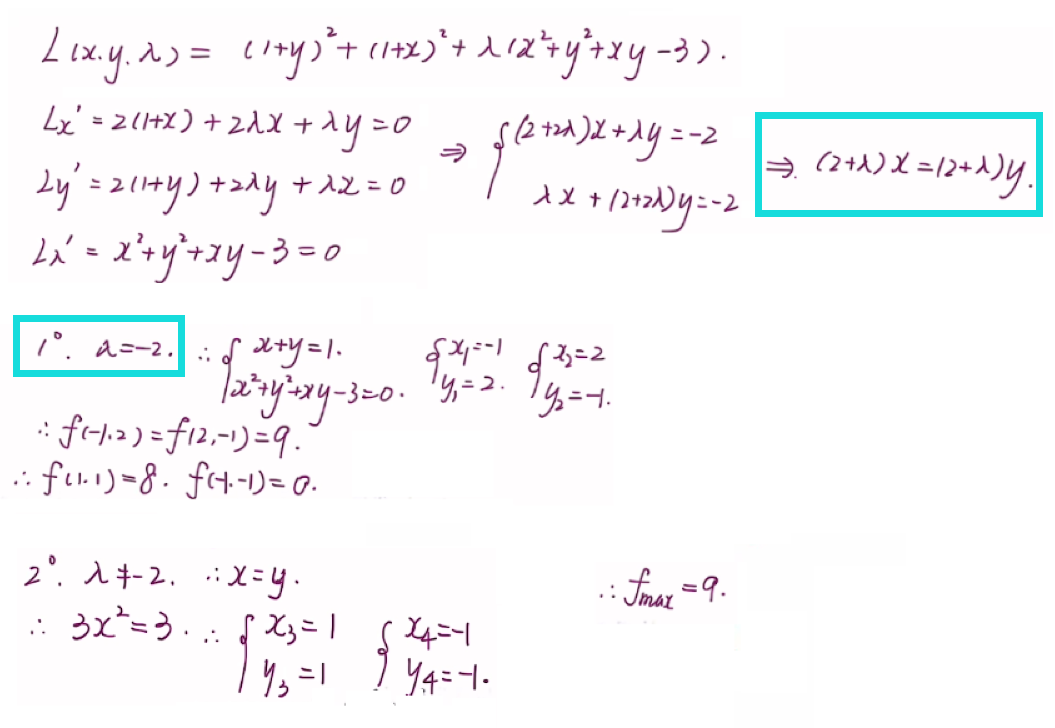 L(x.y.λ) = (1+y)²+(1+x)²+λ(x²+y²+xy-3).
Lx' = 2(1+x)+2λx+λy=0
Ly' = 2(1+y)+2λy+λx=0
Lλ' = x²+y²+xy-3=0
⇒ { (2+2λ)x+λy=-2
λx+(2+2λ)y=-2
⇒. (2+λ)x=(2+λ)y.
1°. λ=-2. ∴ { x+y=1.
x²+y²+xy-3=0.
{ x₁=-1
y₁=2.
{ x₂=2
y₂=-1.
∴ f(-1.2)=f(2,-1)=9.
∴ f(1.1)=8. f(-1.-1)=0.
2°. λ≠-2. ∴x=y.
∴ 3x²=3. ∴ { x₃=1
y₃=1
{ x₄=-1
y₄=-1.
∴ fmax=9.